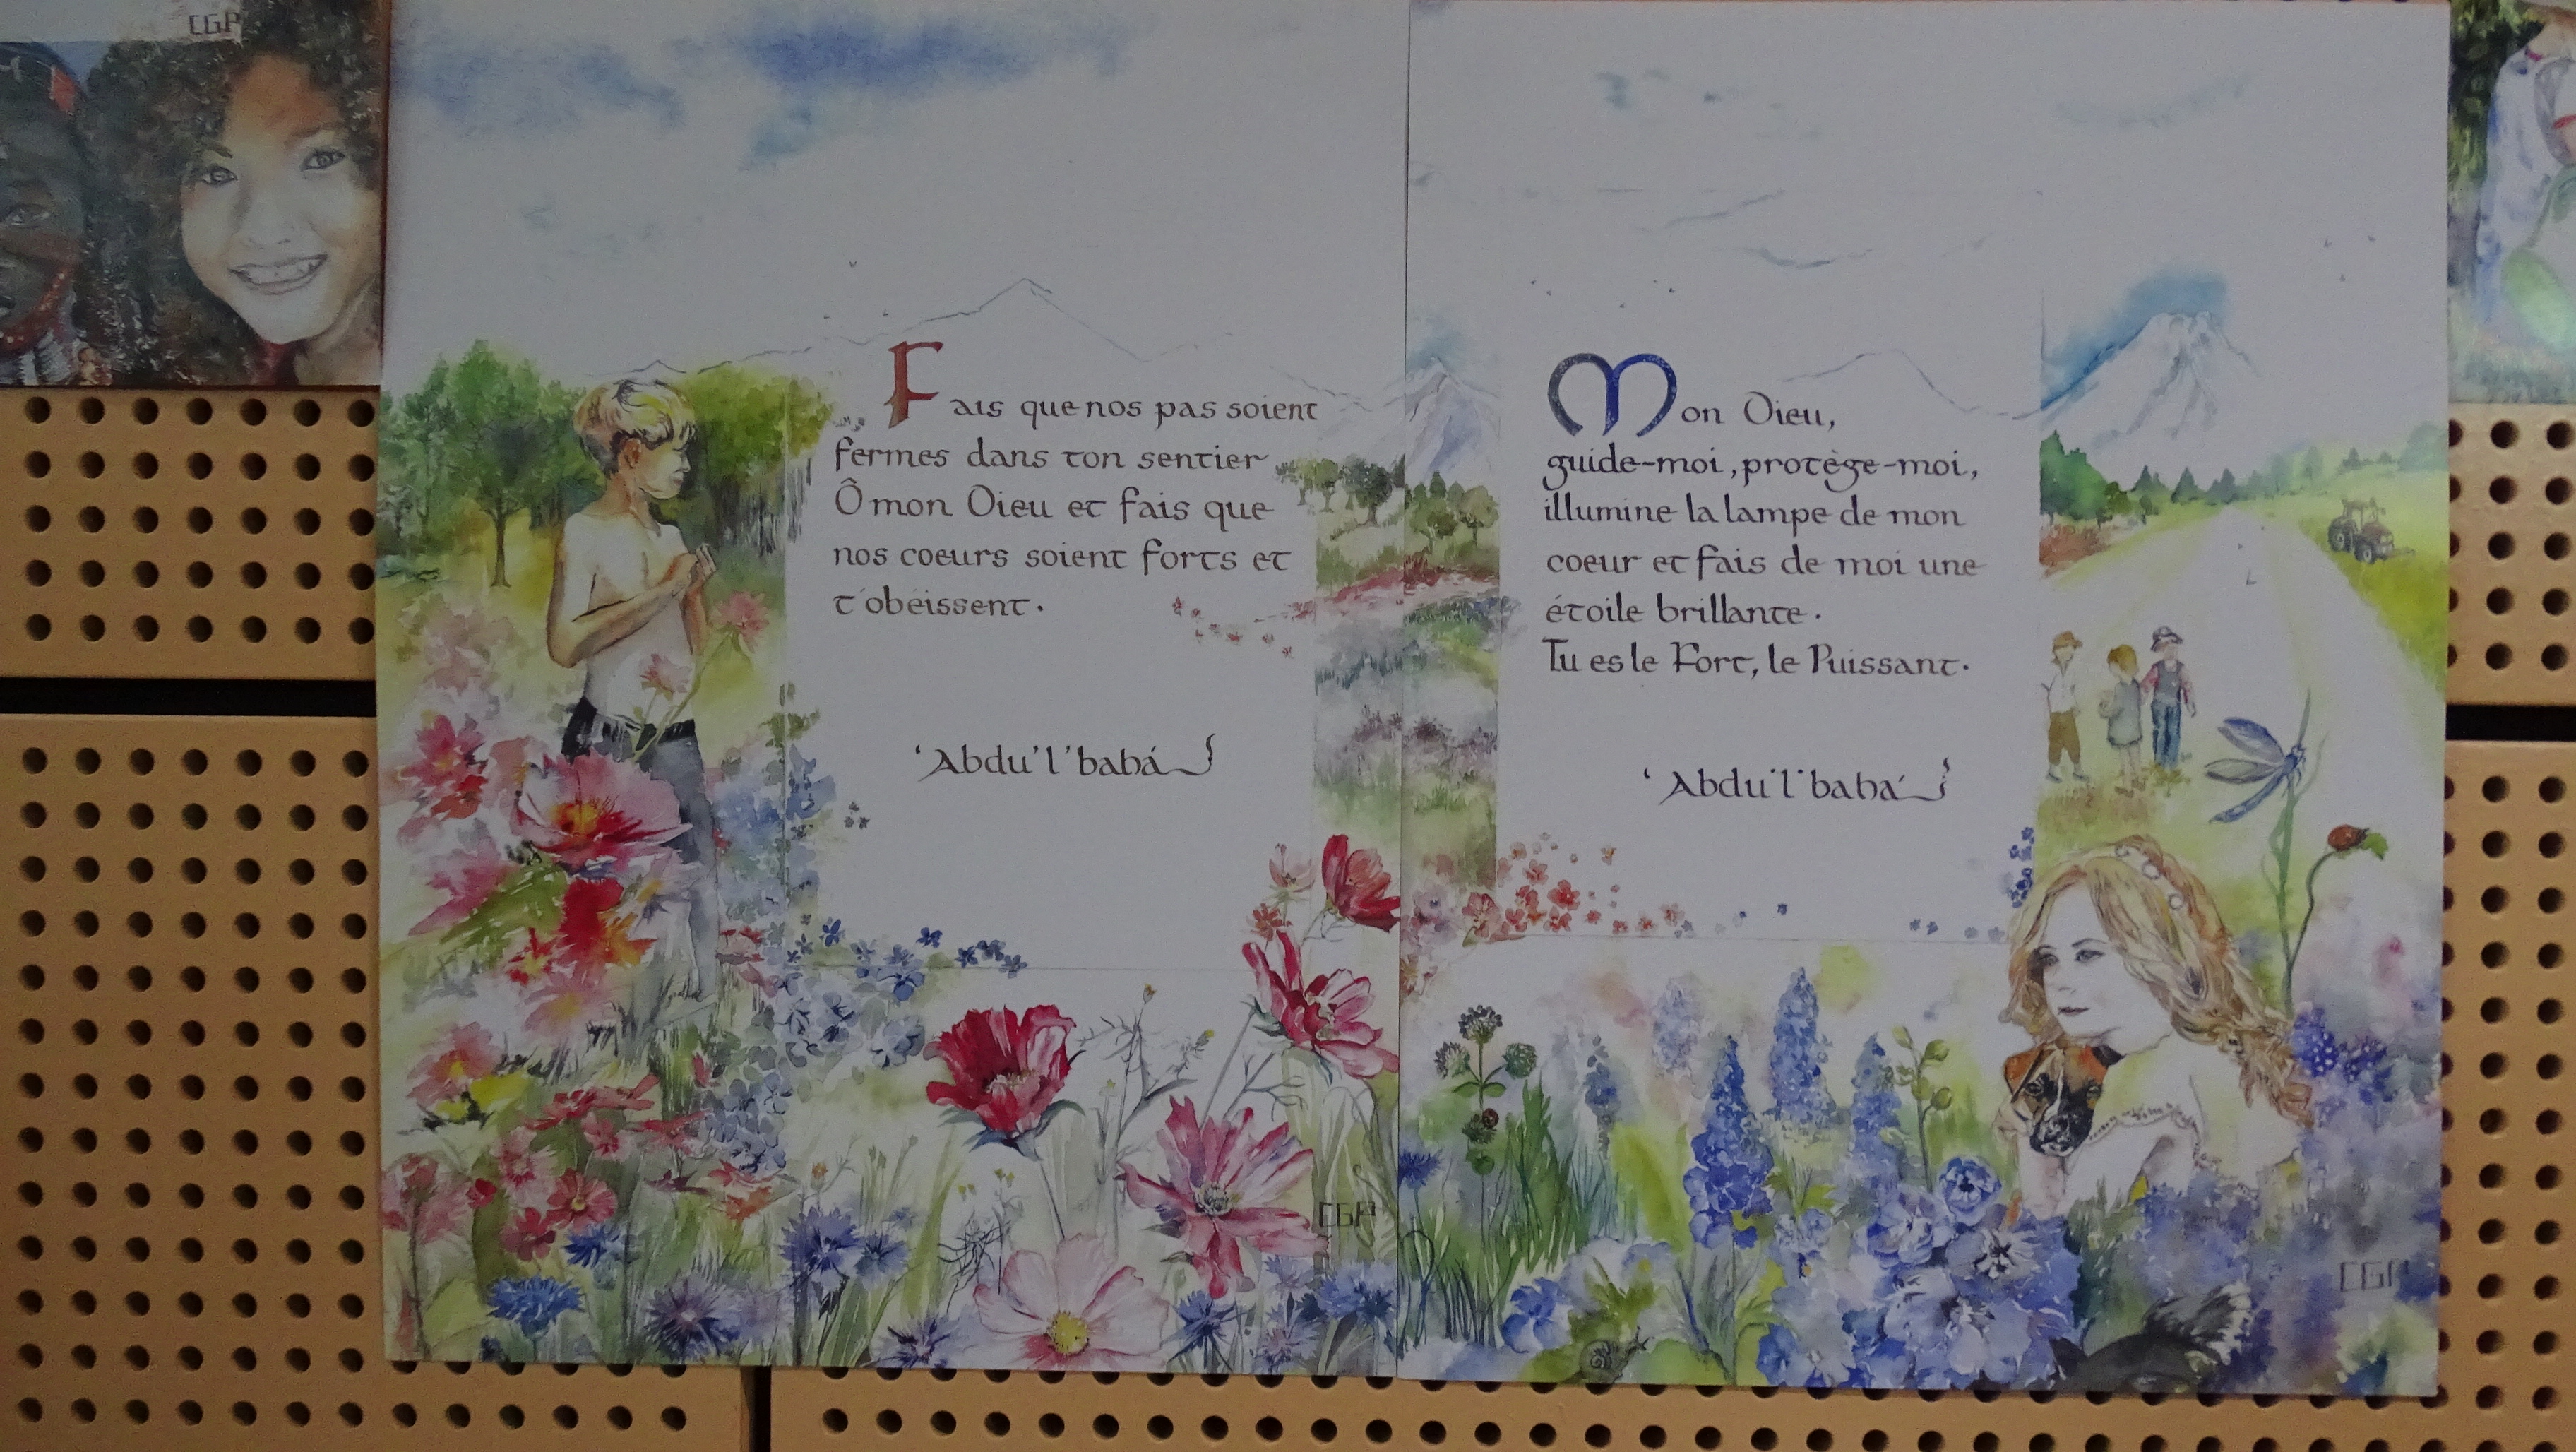 CGP
Fais que nos pas soient
fermes dans ton sentier
Ô mon Dieu et fais que
nos coeurs soient forts et
t'obéissent.
'Abdu'l'bahá
CGP
Mon Dieu,
guide-moi, protège-moi,
illumine la lampe de mon
coeur et fais de moi une
étoile brillante.
Tu es le Fort, le Puissant.
'Abdu'l'bahá
CGP